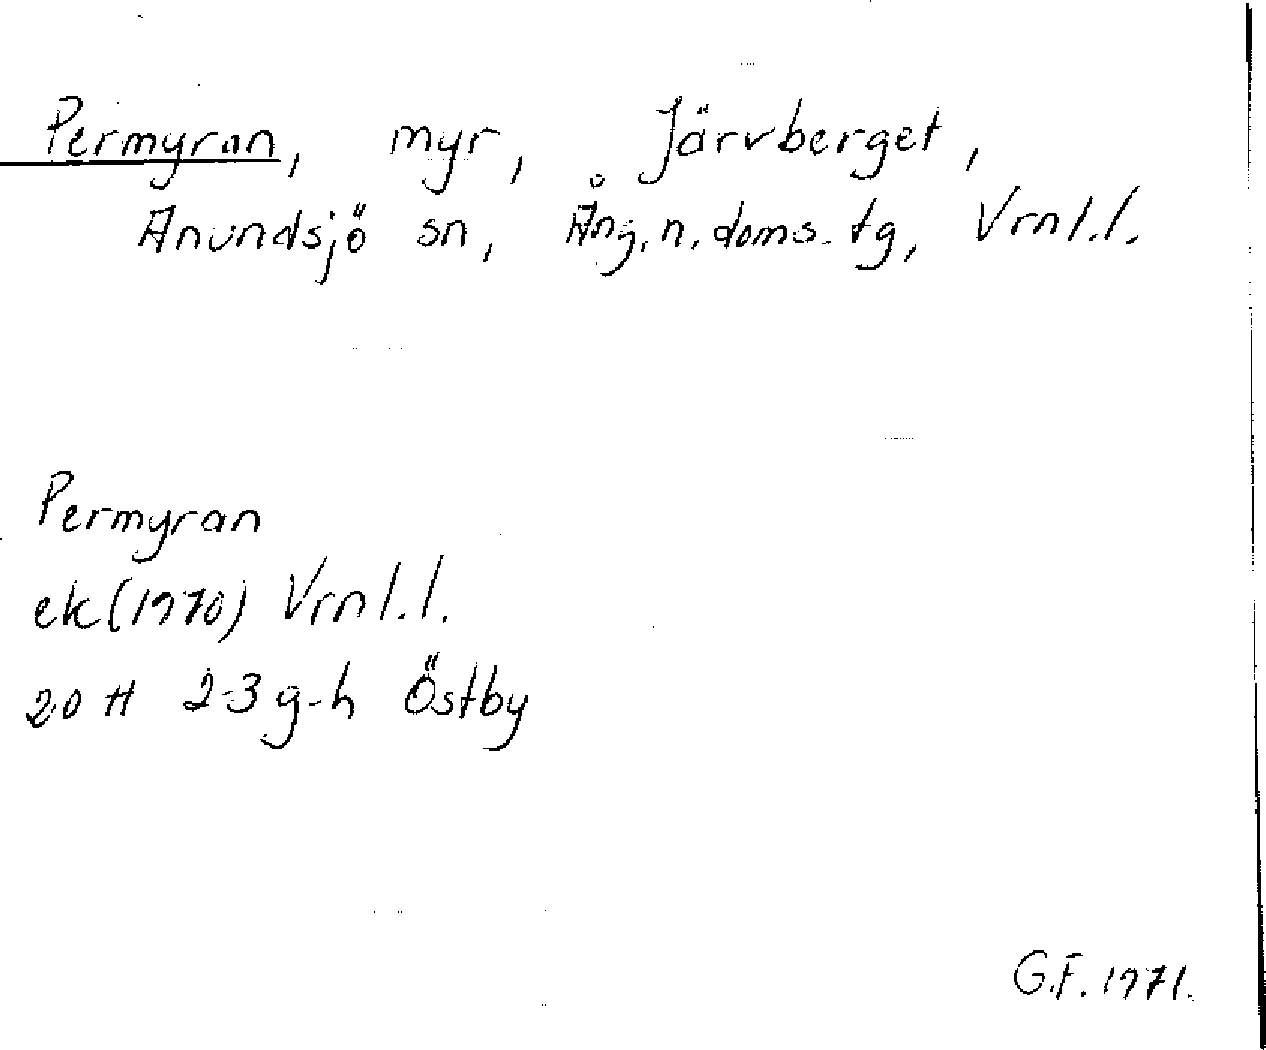 Permyran, myr, Järvberget,
Anundsjö sn, Ång. n. doms. tg, Vrnl.l.
Permyran
ek (1970) Vrnl.l.
20 H 2-3 g-h Östby
G.F. 1971.